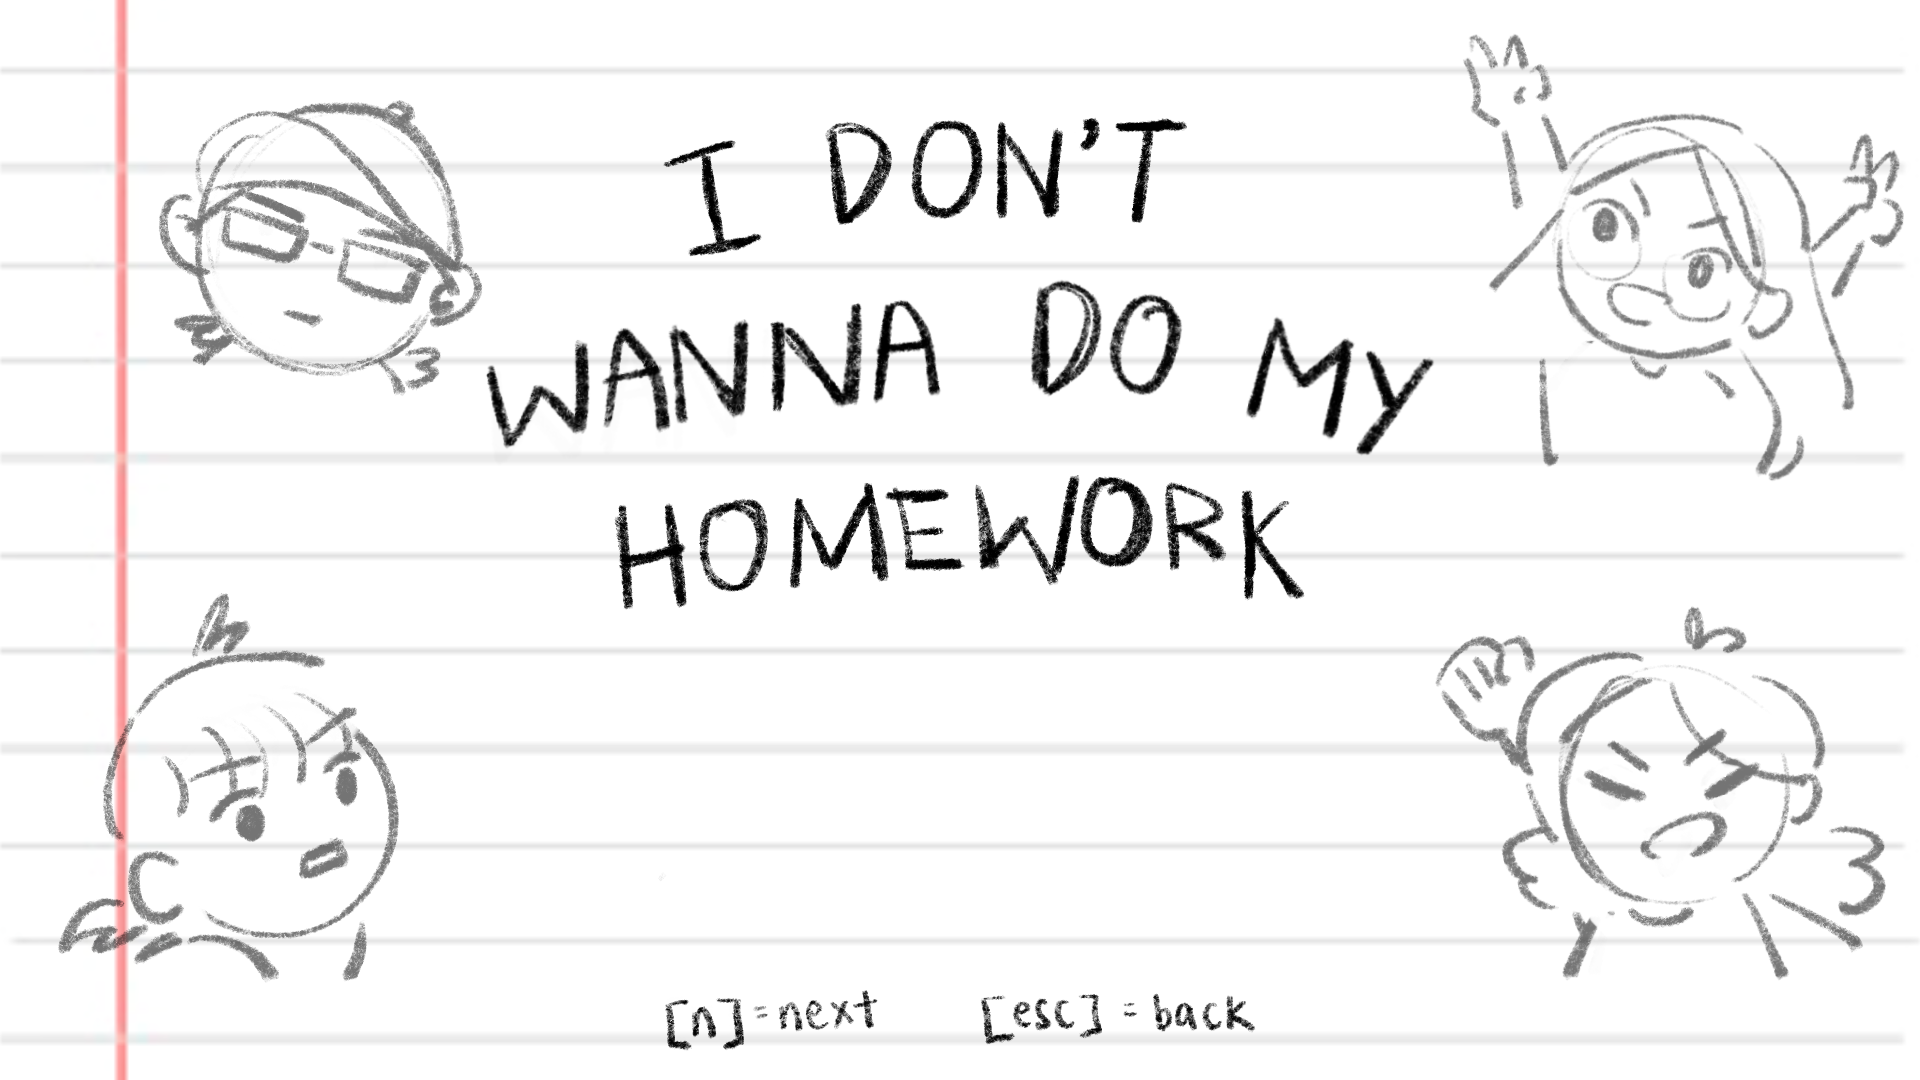 I DON'T
WANNA DO MY
HOMEWORK
[n] = next [esc] = back